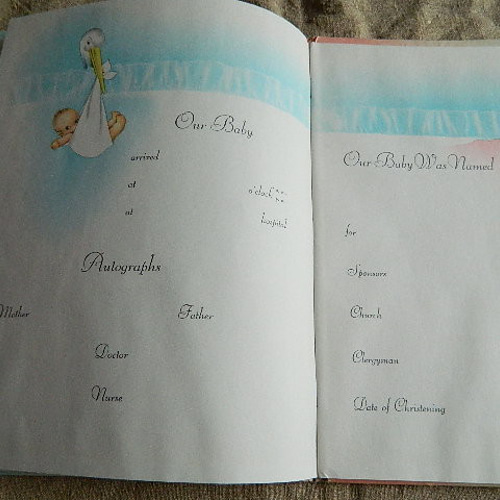 Our Baby
arrived
at
o'clock
at
hospital
Autographs
Mother Father
Doctor
Nurse
Our Baby Was Named
for
Sponsors
Church
Clergyman
Date of Christening